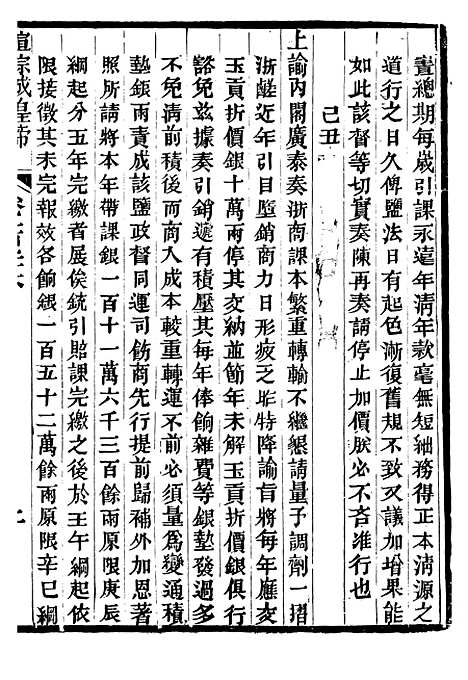 實總期每歲引課永遠年清年款毫無短絀務得正本清源之
道行之日久俾鹽法日有起色漸復舊規不致又議加增果能
如此該督等切實奏陳再奏請停止加價朕必不吝進行也
己丑
上諭內閣廣泰奏浙商課本繁重轉輸不繼懇請量予調劑一摺
浙鹺近年引目壓銷商力形疲乏昨特降諭旨將每年應交
玉貢折價銀十萬兩停其交納並節年未解玉貢折價銀俱行
豁免茲據奏引銷遞有積壓其每年俸餉雜費等銀墊發過多
不免清積後而商人成本較重轉運不前必須量為變通積
墊銀兩責成該鹽政督同運司飭商先行提前歸補外加恩著
照所請將本年帶課銀一百十一萬六千三百餘兩原限庚辰
綱起分五年完繳者展俟統引貽課完繳之後於壬午綱起依
限接徵其未完報效各餉銀一百五十二萬餘兩原限辛巳綱
宣宗成皇帝